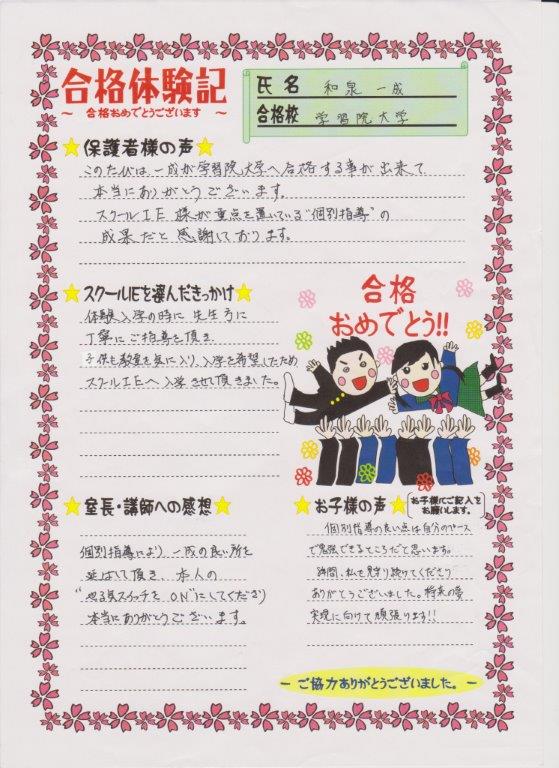 合格体験記
～ 合格おめでとうございます ～
氏名 和泉 一成
合格校 学習院大学
保護者様の声
このたびは一成が学習院大学へ合格する事が出来て
本当にありがとうございます。
スクールIE様が重点を置いている"個別指導"の
成果だと感謝しております。
スクールIEを選んだきっかけ
体験入学の時に先生方に
丁寧にご指導を頂き
子供も教室を気に入り、入学を希望したため
スクールIEへ入学させて頂きました。
合格
おめでとう!!
室長・講師への感想
個別指導により、一成の良い所を
延ばして頂き、本人の
"やる気スイッチを ON"にしてくださり
本当にありがとうございます。
お子様の声
お子様にご記入を
お願いします。
個別指導の良い点は自分のペース
で勉強できるところだと思います。
間、私を見守り続けてくださり
ありがとうございました。将来の夢
実現に向けて頑張ります!!
－ ご協力ありがとうございました。 －